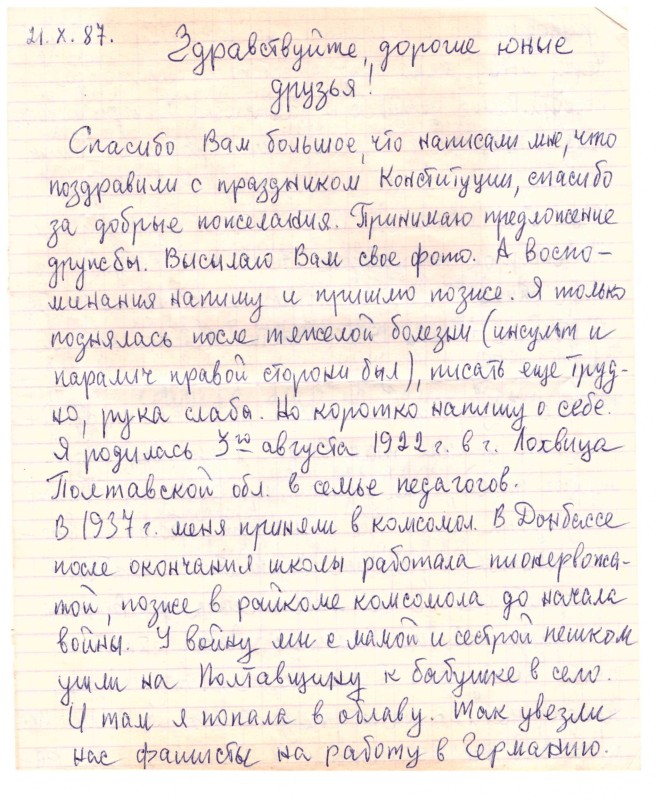 21.X.87.
Здравствуйте, дорогие юные
друзья!
Спасибо Вам большое, что написали мне, что
поздравили с праздником Конституции, спасибо
за добрые пожелания. Принимаю предложение
дружбы. Высылаю Вам свое фото. А воспо-
минания напишу и пришлю позже. Я только
поднялась после тяжелой болезни (инсульт и
паралич правой сторони был), писать еще труд-
но, рука слаба. Но коротко напишу о себе.
Я родилась 3го августа 1922 г. в г. Лохвица
Полтавской обл. в семье педагогов.
В 1937 г. меня приняли в комсомол. В Донбассе
после окончания школы работала пионервожа-
той, позже в райкоме комсомола до начала
войны. У войну ми с мамой и сестрой пешком
ушли на Полтавщину к бабушке в село.
И там я попала в облаву. Так увезли
нас фашисты на работу в Германию.